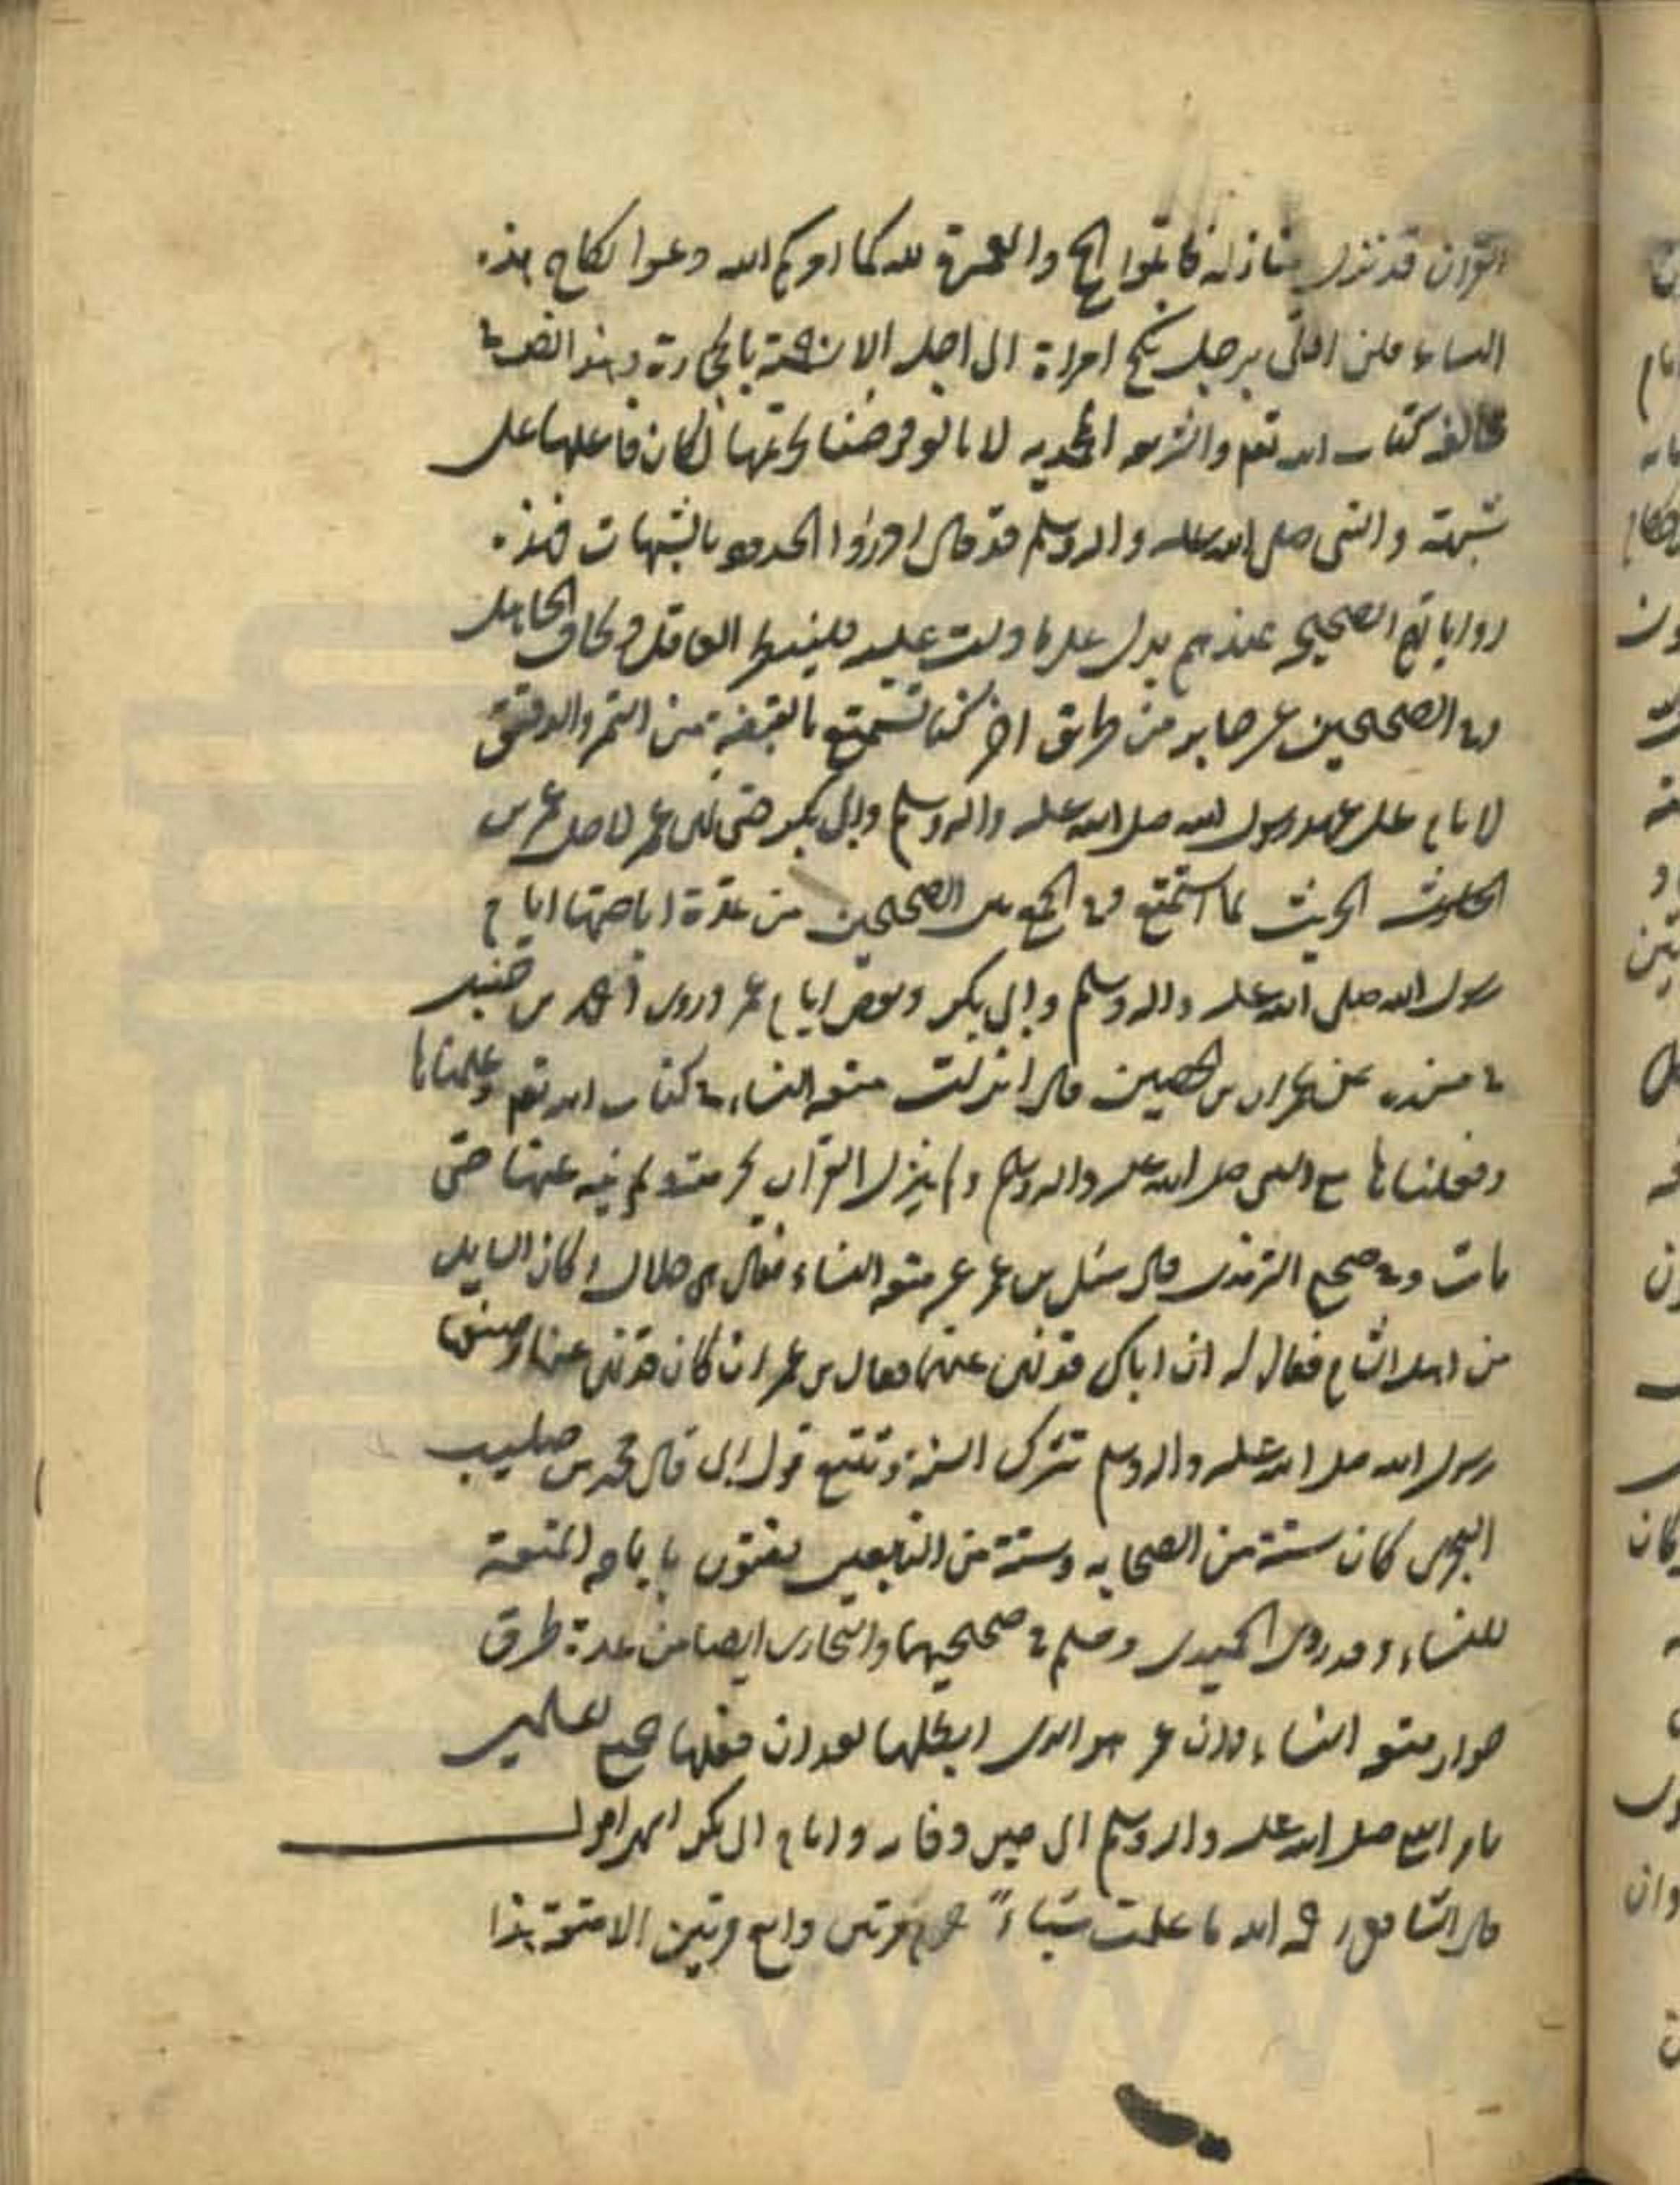 القرآن قد نزل منازله فاتموا الحج والعمرة لله كما امركم الله ودعوا نكاح هذه
النساء فلن اوتى برجل نكح امراة الى اجل الا رجمته بالحجارة وهذا
مخالف كتاب الله تعم والشرعه المحمديه لانا لو فرضنا تحريمها لكان فاعلها على
شبهة والنبي صلى الله عليه واله وسلم قد قال ادرؤا الحدود بالشبهات فهذه
رواياتهم الصحيحه عندهم يدل على ما دلت عليه فلينظر العاقل ويخاف الجاهل
وفي الصحيحين عن جابر من طريق اخر كنا نستمتع بالقبضة من التمر والدقيق
الايام على عهد رسول الله صلى الله عليه واله وسلم وابى بكر حتى نهى عمر لاجل عمرو بن
الحريث لما استمتع وفي الجمع بين الصحيحين من عدة اباحتها ايام
رسول الله صلى الله عليه واله وسلم وابى بكر وبعض ايام عمر وروى احمد بن حنبل
في مسنده عن عمران بن الحصين قال انزلت متعه النساء في كتاب الله تعم وعلمناها
وفعلناها مع النبي صلى الله عليه واله وسلم ولم ينزل القرآن بحرمته ولم ينه عنها حتى
مات وفي صحيح الترمذى قال سئل بن عمر عن متعه النساء فقال هى حلال وكان السايل
من اهل الشام فقال له ان اباك قد نهى عنها فقال بن عمر ان كان قد نهى عنها وصنعها
رسول الله صلى الله عليه واله وسلم تترك السنة وتتبع قول ابى قال محمد بن حبيب
كان ستة من الصحابه وستة من التابعين يفتون باباحه المتعة
للنساء وقد روى الحميدى ومسلم في صحيحيهما والبخارى ايضا من عدة طرق
جواز متعه النساء وان عمر هو الذى ابطلها بعد ان فعلها جميع المسلمين
بامر النبى صلى الله عليه واله وسلم الى حين وفاته وايام ابى بكر
قال الشافعى رحمه الله ما علمت شياءً حرم مرتين وابيح مرتين الا متعة هذا